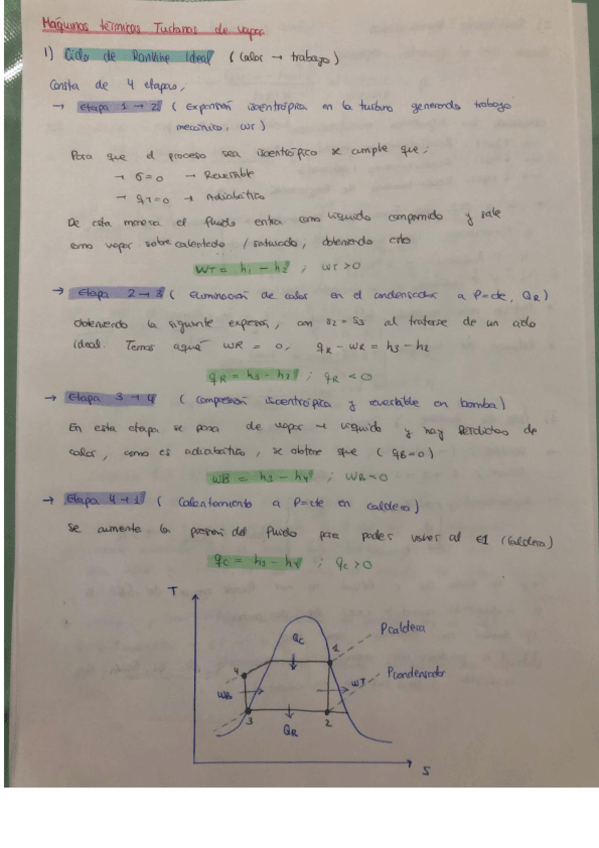 Máquinas térmicas Turbinas de vapor
1) Ciclo de Rankine Ideal (Calor → trabajo)
Consta de 4 etapas,
→ Etapa 1 → 2 (Expansión isoentrópica en la turbina generando trabajo
mecánico, WT)
Para que el proceso sea isoentrópico se cumple que:
→ σ=0 → Reversible
→ qT=0 → Adiabático
De esta manera el fluido entra como líquido comprimido y sale
como vapor sobrecalentado / saturado, obteniendo esto
WT = h1 - h2 ; WT > 0
→ Etapa 2 → 3 (Eliminación de calor en el condensador a P=cte, QR)
obteniendo la siguiente expresión, con s2 = s3 al tratarse de un ciclo
ideal. Temos aquí WR = 0, qR - WR = h3 - h2
qR = h3 - h2 ; qR < 0
→ Etapa 3 → 4 (Compresión isoentrópica y reversible en bomba)
En esta etapa se pasa de vapor → líquido y hay pérdidas de
calor, como es adiabático, se obtiene que (qB=0)
WB = h3 - h4 ; WB < 0
→ Etapa 4 → 1 (Calentamiento a P=cte en caldera)
Se aumenta la presión del fluido para poder volver al E1 (Caldera)
qC = h3 - h4 ; qC > 0
T
QC
1
Pcaldera
4
WB
WT
Pcondensador
3
2
QR
S